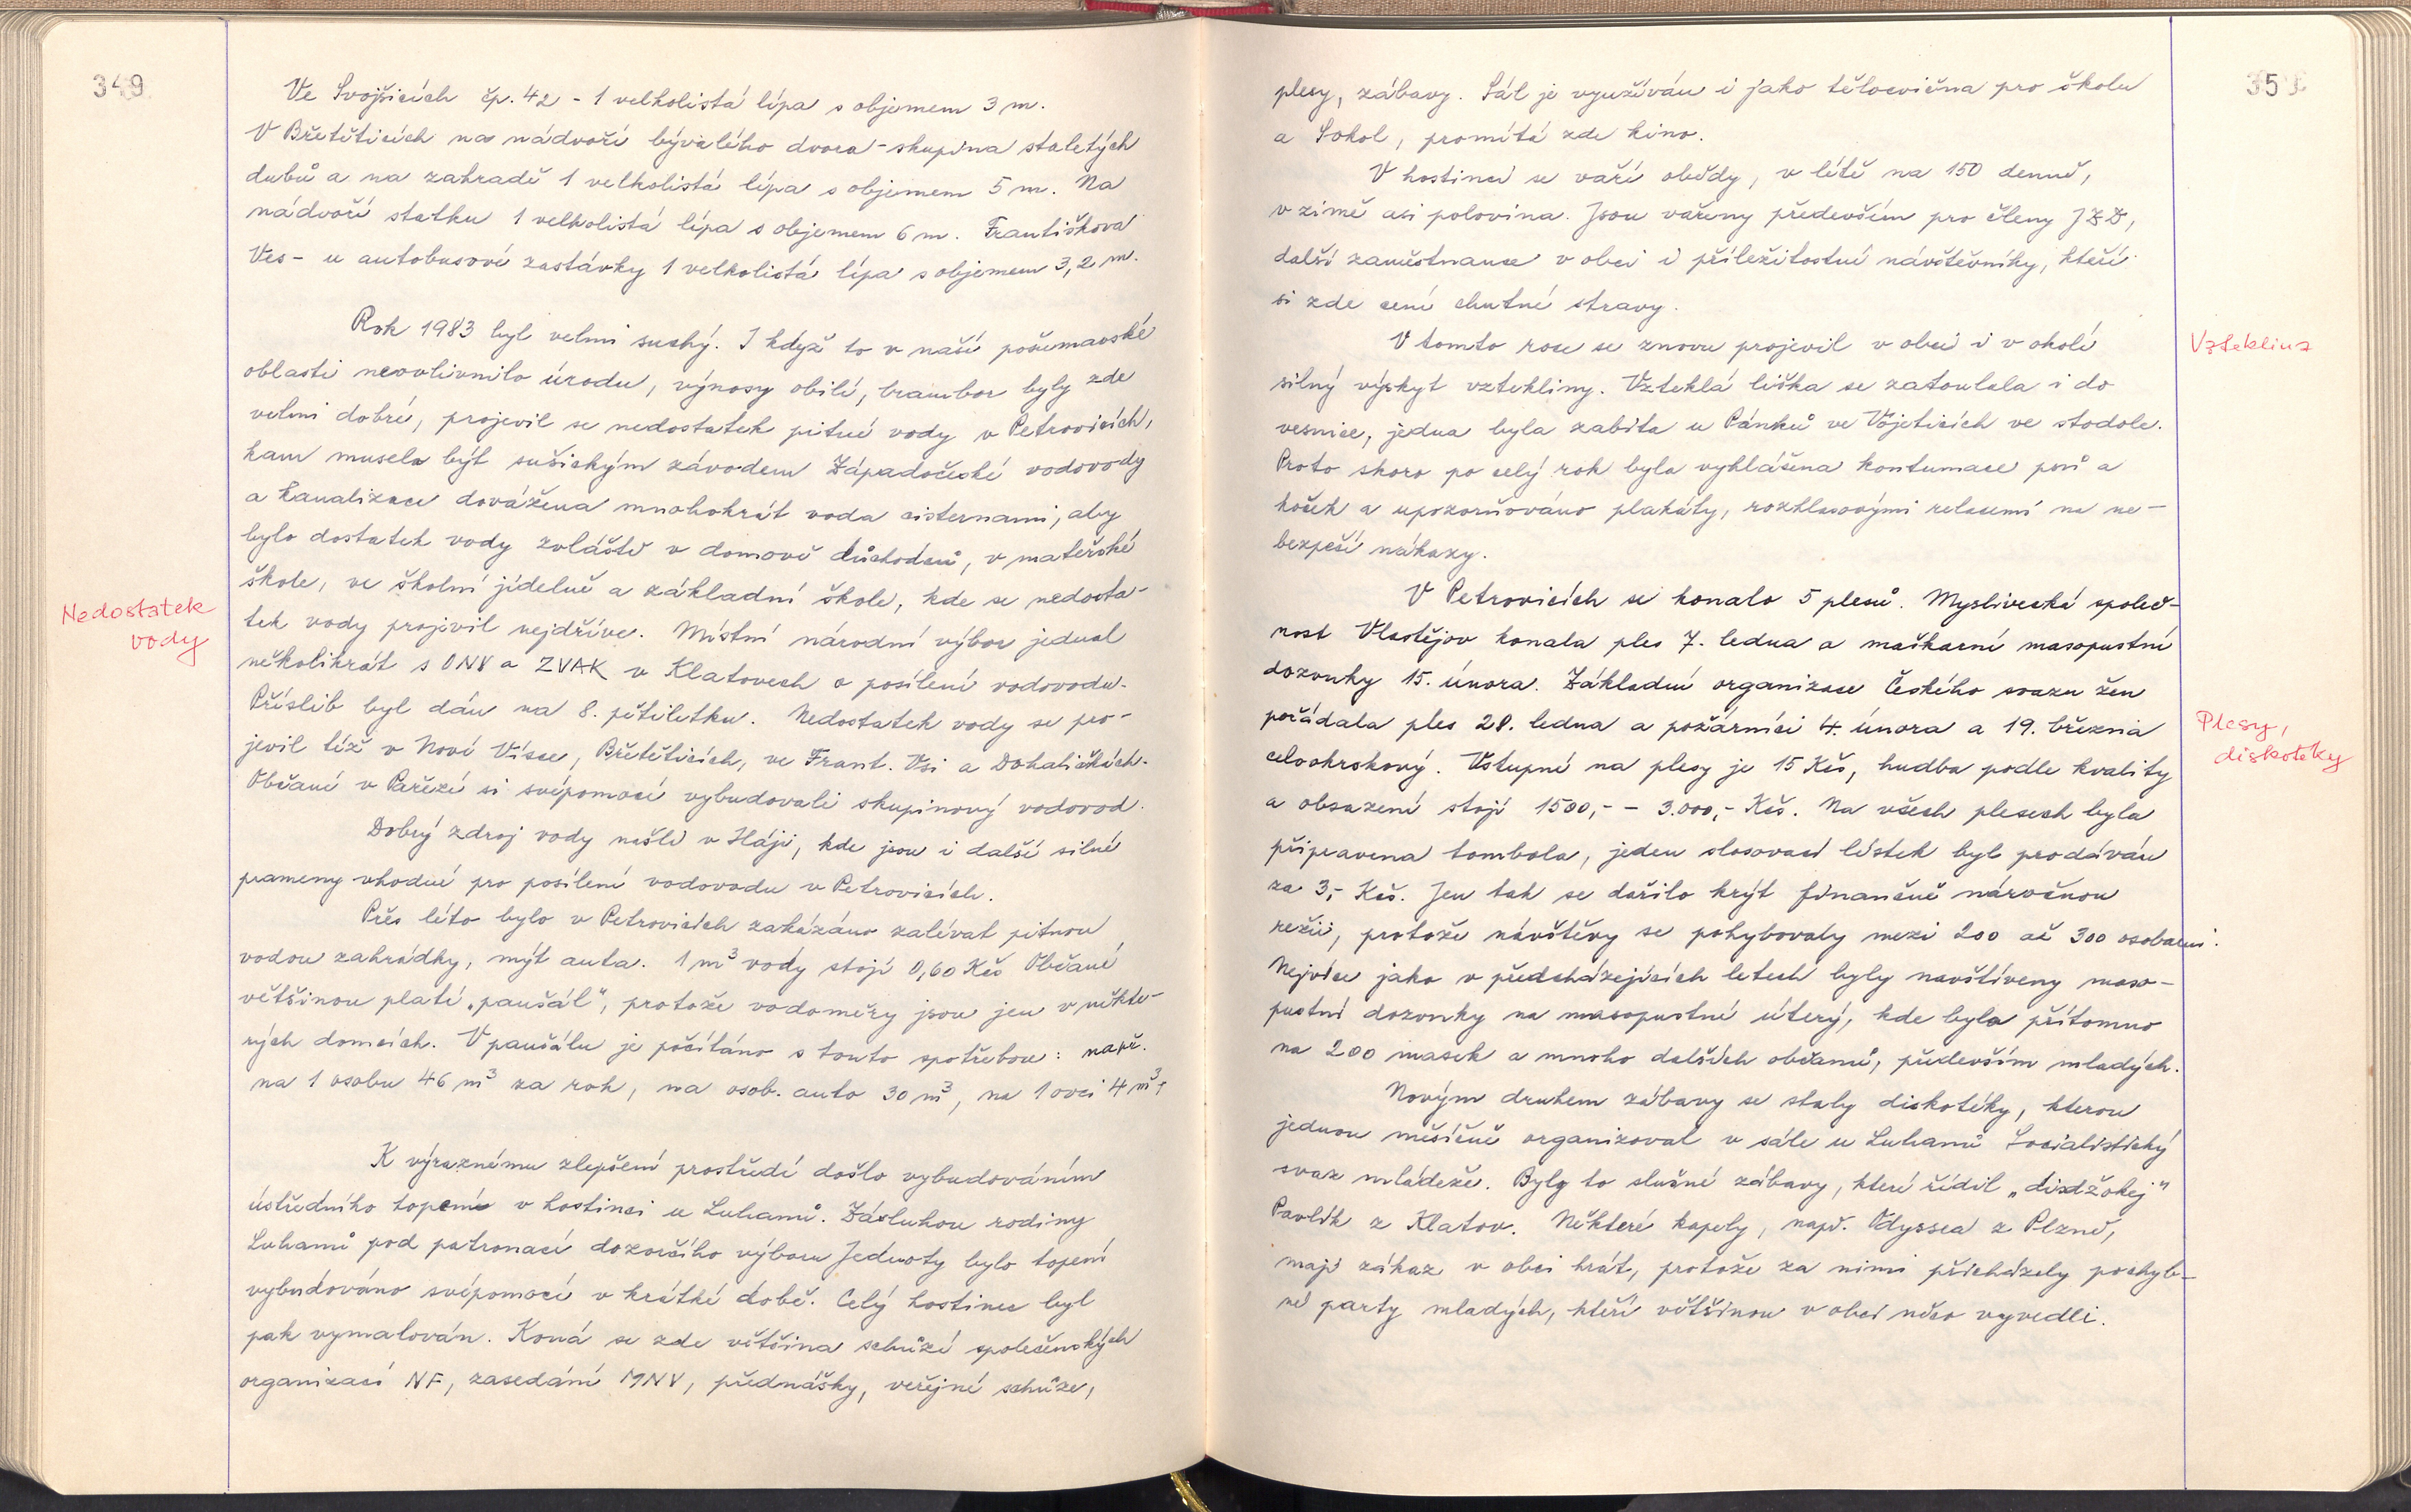 349
Ve Svojšicích čp. 42 - 1 velkolistá lípa s objemem 3 m.
V Břetěticích na nádvoří bývalého dvora - skupina staletých
dubů a na zahradě 1 velkolistá lípa s objemem 5 m. Na
nádvoří statku 1 velkolistá lípa s objemem 6 m. Františkova
Ves - u autobusové zastávky 1 velkolistá lípa s objemem 3,2 m.
Rok 1983 byl velmi suchý. I když to v naší pošumavské
oblasti neovlivnilo úrodu, výnosy obilí, brambor byly zde
velmi dobré, projevil se nedostatek pitné vody v Petrovicích,
kam musela být sušickým závodem Západočeské vodovody
a kanalizace dovážena mnohokrát voda cisternami, aby
bylo dostatek vody zvláště v domově důchodců, v mateřské
škole, ve školní jídelně a základní škole, kde se nedosta-
tek vody projevil nejdříve. Místní národní výbor jednal
několikrát s ONV a ZVAK v Klatovech o posílení vodovodu.
Příslib byl dán na 8. pětiletku. Nedostatek vody se pro-
jevil též v Nové Vísce, Břetěticích, ve Frant. Vsi a Dohaličkách.
Občané v Pařezí si svépomocí vybudovali skupinový vodovod.
Dobrý zdroj vody našli v Háji, kde jsou i další silné
prameny vhodné pro posílení vodovodu v Petrovicích.
Přes léto bylo v Petrovicích zakázáno zalévat pitnou
vodou zahrádky, mýt auta. 1 m³ vody stojí 0,60 Kčs Občané
většinou platí „paušál", protože vodoměry jsou jen v někte-
rých domcích. V paušálu je počítáno s touto spotřebou: např.
na 1 osobu 46 m³ za rok, na osob. auto 30 m³, na 1 ovci 4 m³,
K výraznému zlepšení prostředí došlo vybudováním
ústředního topení v hostinci u Luhanů. Zásluhou rodiny
Luhanů pod patronací dozorčího výboru Jednoty bylo topení
vybudováno svépomocí v krátké době. Celý hostinec byl
pak vymalován. Koná se zde většina schůzí společenských
organizací NF, zasedání MNV, přednášky, veřejné schůze,
Nedostatek
vody
plesy, zábavy. Sál je využíván i jako tělocvična pro školu
a Sokol, promítá zde kino.
V hostinci se vaří obědy, v létě na 150 denně,
v zimě asi polovina. Jsou vařeny především pro členy JZD,
další zaměstnance v obci i příležitostné návštěvníky, kteří
si zde cení chutné stravy.
V tomto roce se znovu projevil v obci i v okolí
silný výskyt vztekliny. Vzteklá liška se zatoulala i do
vesnice, jedna byla zabita u Pánků ve Vojeticích ve stodole.
Proto skoro po celý rok byla vyhlášena kontumace psů a
koček a upozorňováno plakáty, rozhlasovými relacemi na ne-
bezpečí nákazy.
V Petrovicích se konalo 5 plesů. Myslivecká společ-
nost Vlastějov konala ples 7. ledna a maškarní masopustní
dozvuky 15. února. Základní organizace Českého svazu žen
pořádala ples 28. ledna a požárníci 4. února a 19. března
celookrskový. Vstupné na plesy je 15 Kčs, hudba podle kvality
a obsazení stojí 1500,- - 3.000,- Kčs. Na všech plesech byla
připravena tombola, jeden slosovací lístek byl prodáván
za 3,- Kčs. Jen tak se dařilo krýt finančně náročnou
režii, protože návštěvy se pohybovaly mezi 200 až 300 osobami.
Nejvíce jako v předcházejících letech byly navštíveny maso-
pustní dozvuky na masopustní úterý, kde bylo přítomno
na 200 masek a mnoho dalších občanů, především mladých.
Novým druhem zábavy se staly diskotéky, kterou
jednou měsíčně organizoval v sále u Luhanů Socialistický
svaz mládeže. Byly to slušné zábavy, které řídil „disdžokej"
Pavlík z Klatov. Některé kapely, např. Odyssea z Plzně,
mají zákaz v obci hrát, protože za nimi přicházely pochyb-
né party mladých, kteří většinou v obci něco vyvedli.
Vzteklina
Plesy,
diskotéky